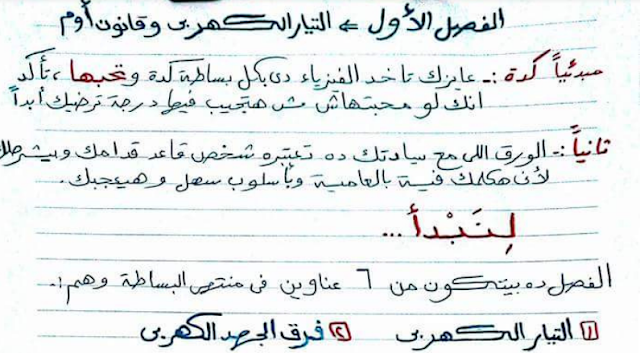 الفصل الأول ← التيار الكهربى وقانون أوم
مبدئياً كدة :- عايزك تاخد الفيزياء دى بكل بساطة كدة وتحبها، تأكد
انك لو محبتهاش مش هتجيب فيها درجة ترضيك أبداً
ثانياً :- الورق اللى مع سيادتك ده تعتبره شخص قاعد قدامك وبيشرحلك
لأن هكلمك فية بالعامية وبأسلوب سهل وهيعجبك.
لِنَبْدأ ...
الفصل ده بيتكون من 6 عناوين فى منتهى البساطة وهم :-
1 التيار الكهربى 2 فرق الجهد الكهربى